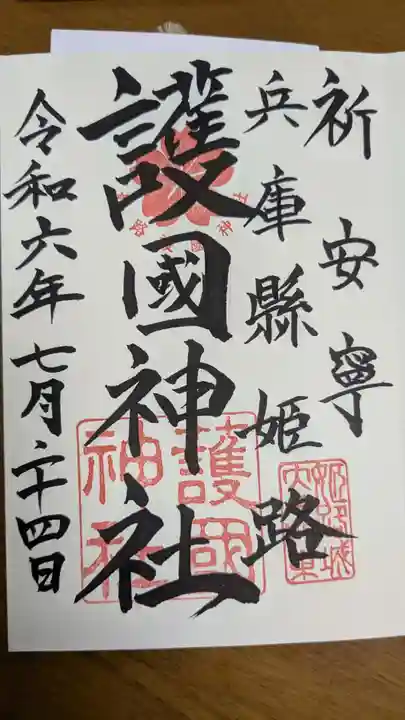 祈安寧
兵庫縣姫路
護國神社
令和六年七月二十四日
護國
神社
姫路城